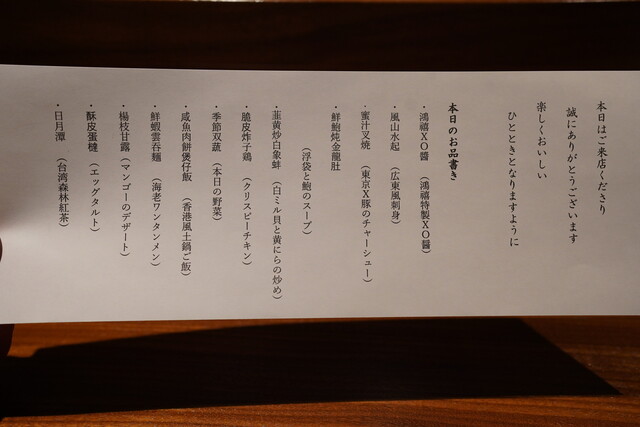 本日はご来店くださり
誠にありがとうございます
楽しくおいしい
ひとときとなりますように
本日のお品書き
・鴻禧XO醤 （鴻禧特製XO醤）
・風山水起 （広東風刺身）
・蜜汁叉焼 （東京X豚のチャーシュー）
・鮮鮑炖金龍肚
（浮袋と鮑のスープ）
・韮黄炒白象蚌 （白ミル貝と黄にらの炒め）
・脆皮炸子鶏 （クリスピーチキン）
・季節双蔬 （本日の野菜）
・咸魚肉餅煲仔飯 （香港風土鍋ご飯）
・鮮蝦雲呑麺 （海老ワンタンメン）
・楊枝甘露 （マンゴーのデザート）
・酥皮蛋撻 （エッグタルト）
・日月潭 （台湾森林紅茶）